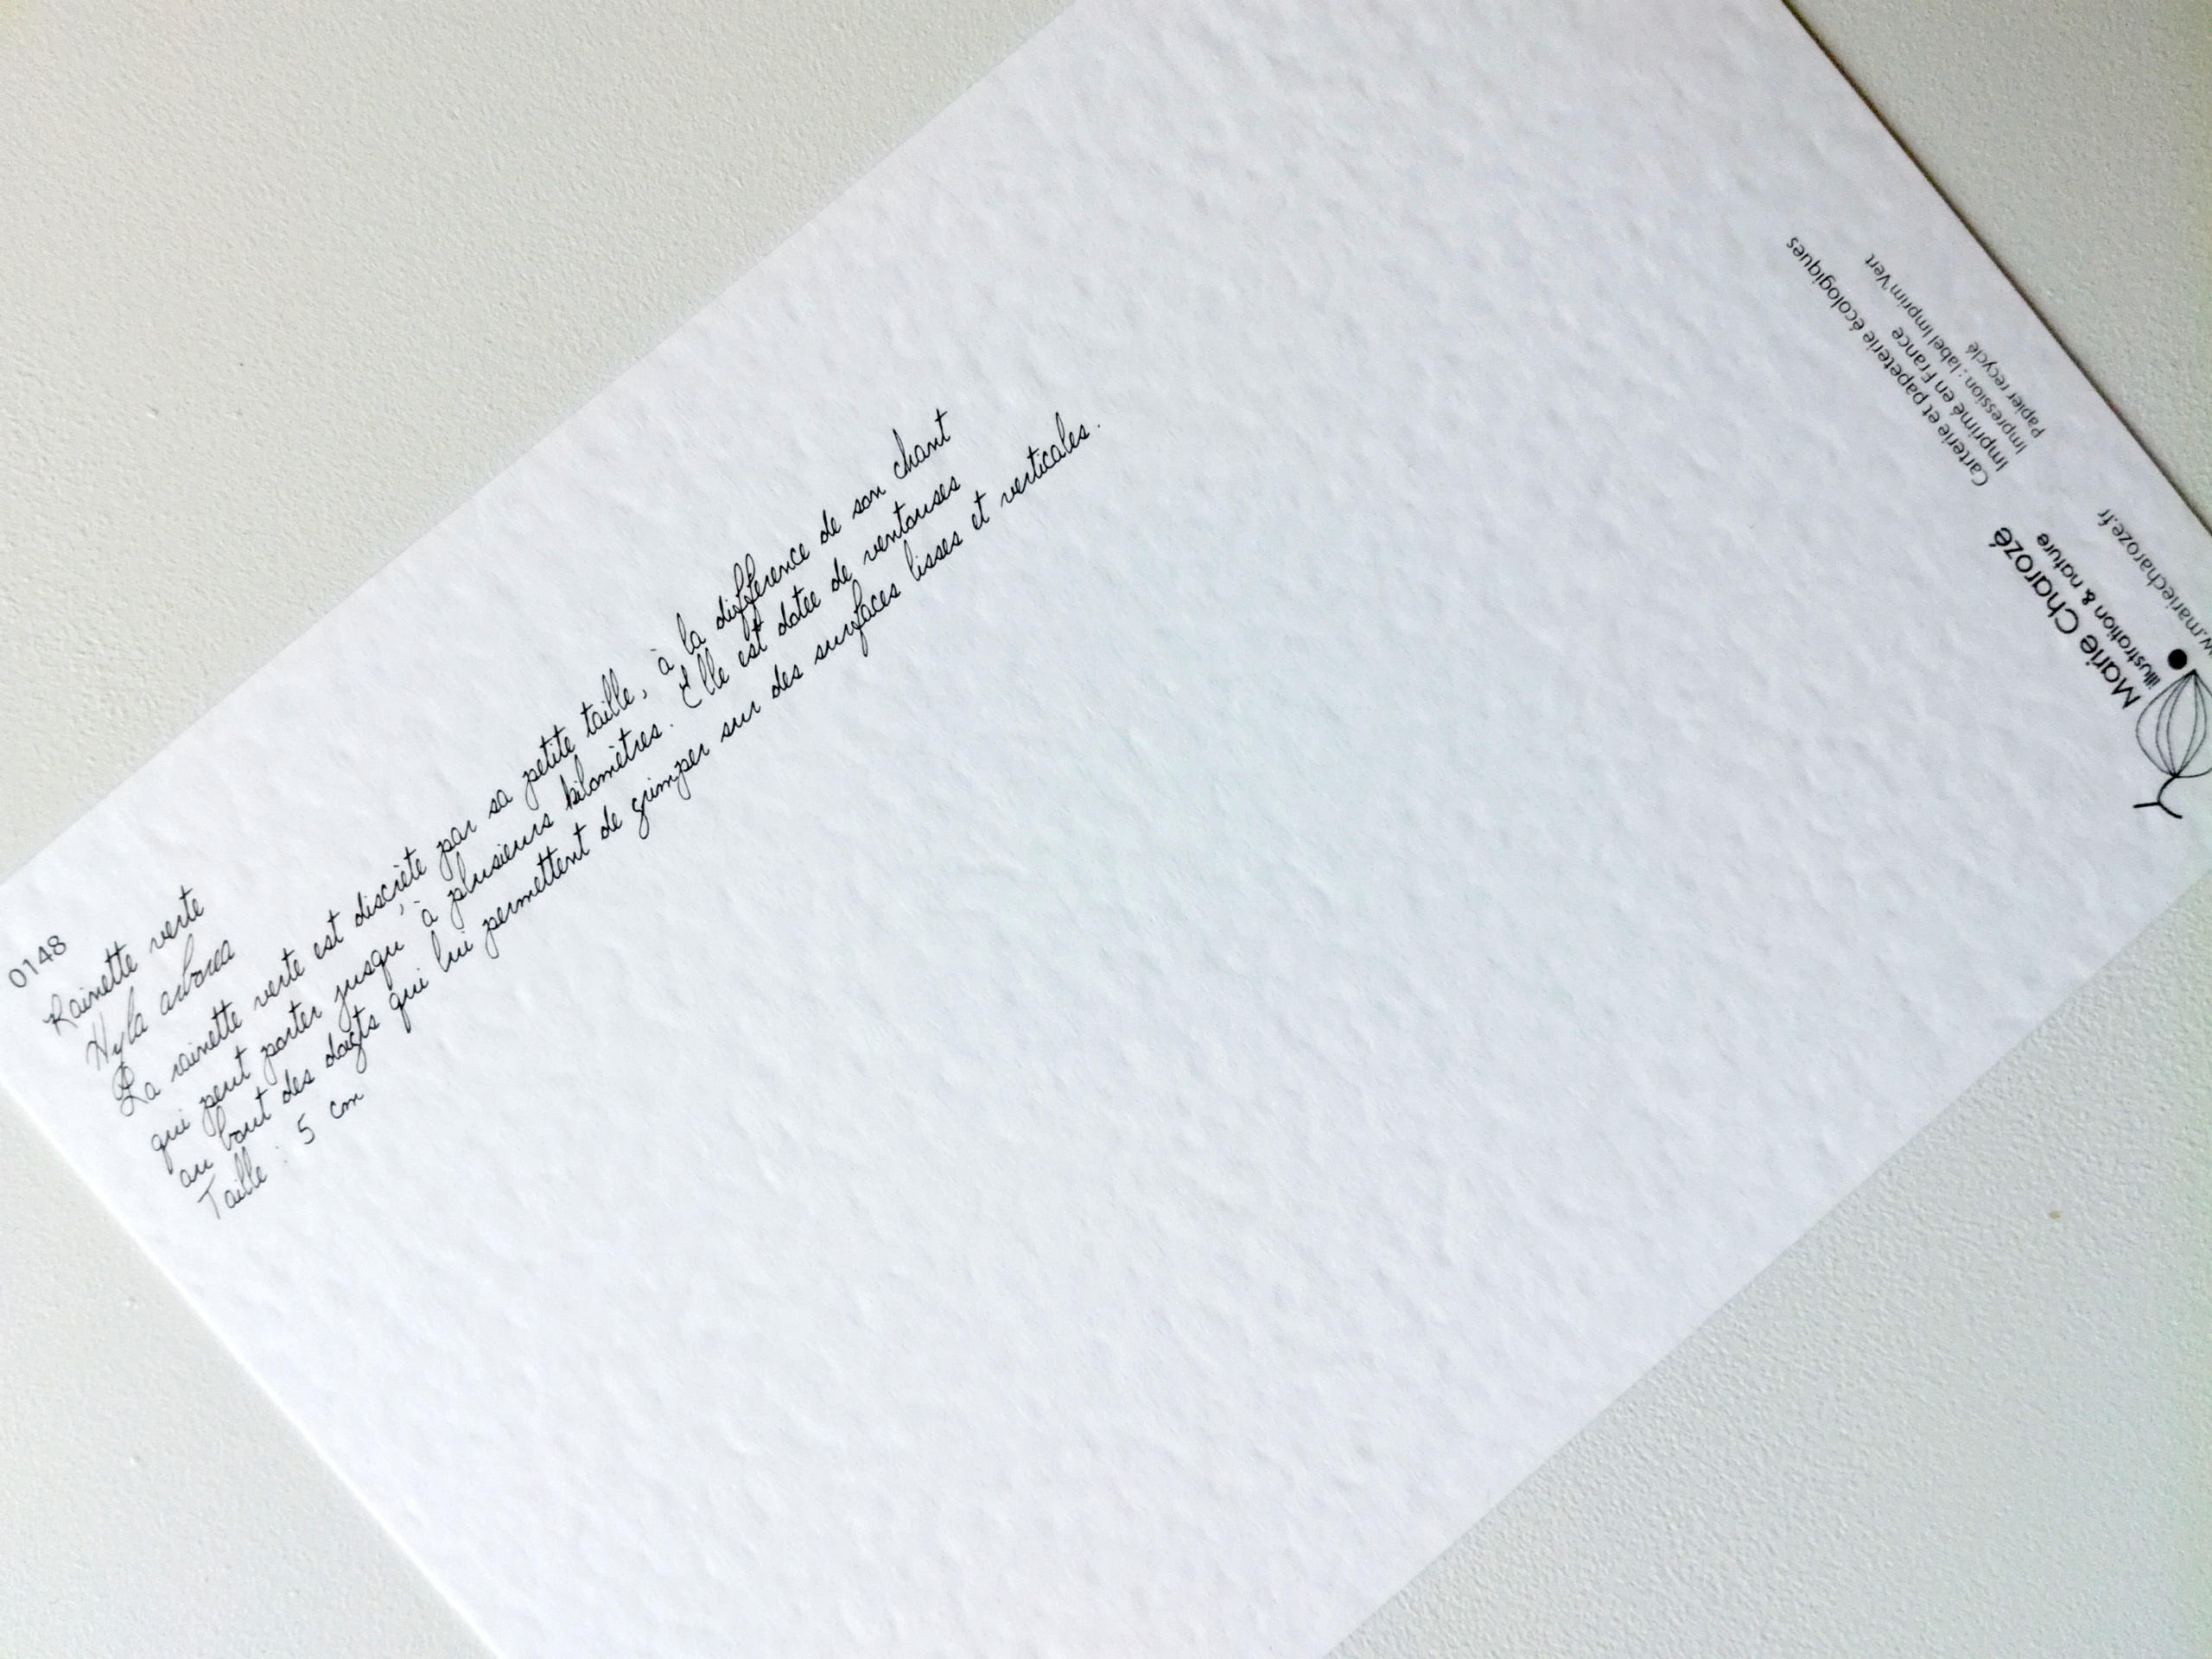 0148
Rainette verte
Hyla arborea
La rainette verte est discrète par sa petite taille, à la différence de son chant
qui peut porter jusqu'à plusieurs kilomètres. Elle est dotée de ventouses
au bout des doigts qui lui permettent de grimper sur des surfaces lisses et verticales.
Taille : 5 cm
Marie Charozé
illustration & nature
mariecharoze.fr
Carterie et papeterie écologiques
Imprimé en France
Impression : label Imprim'Vert
Papier recyclé